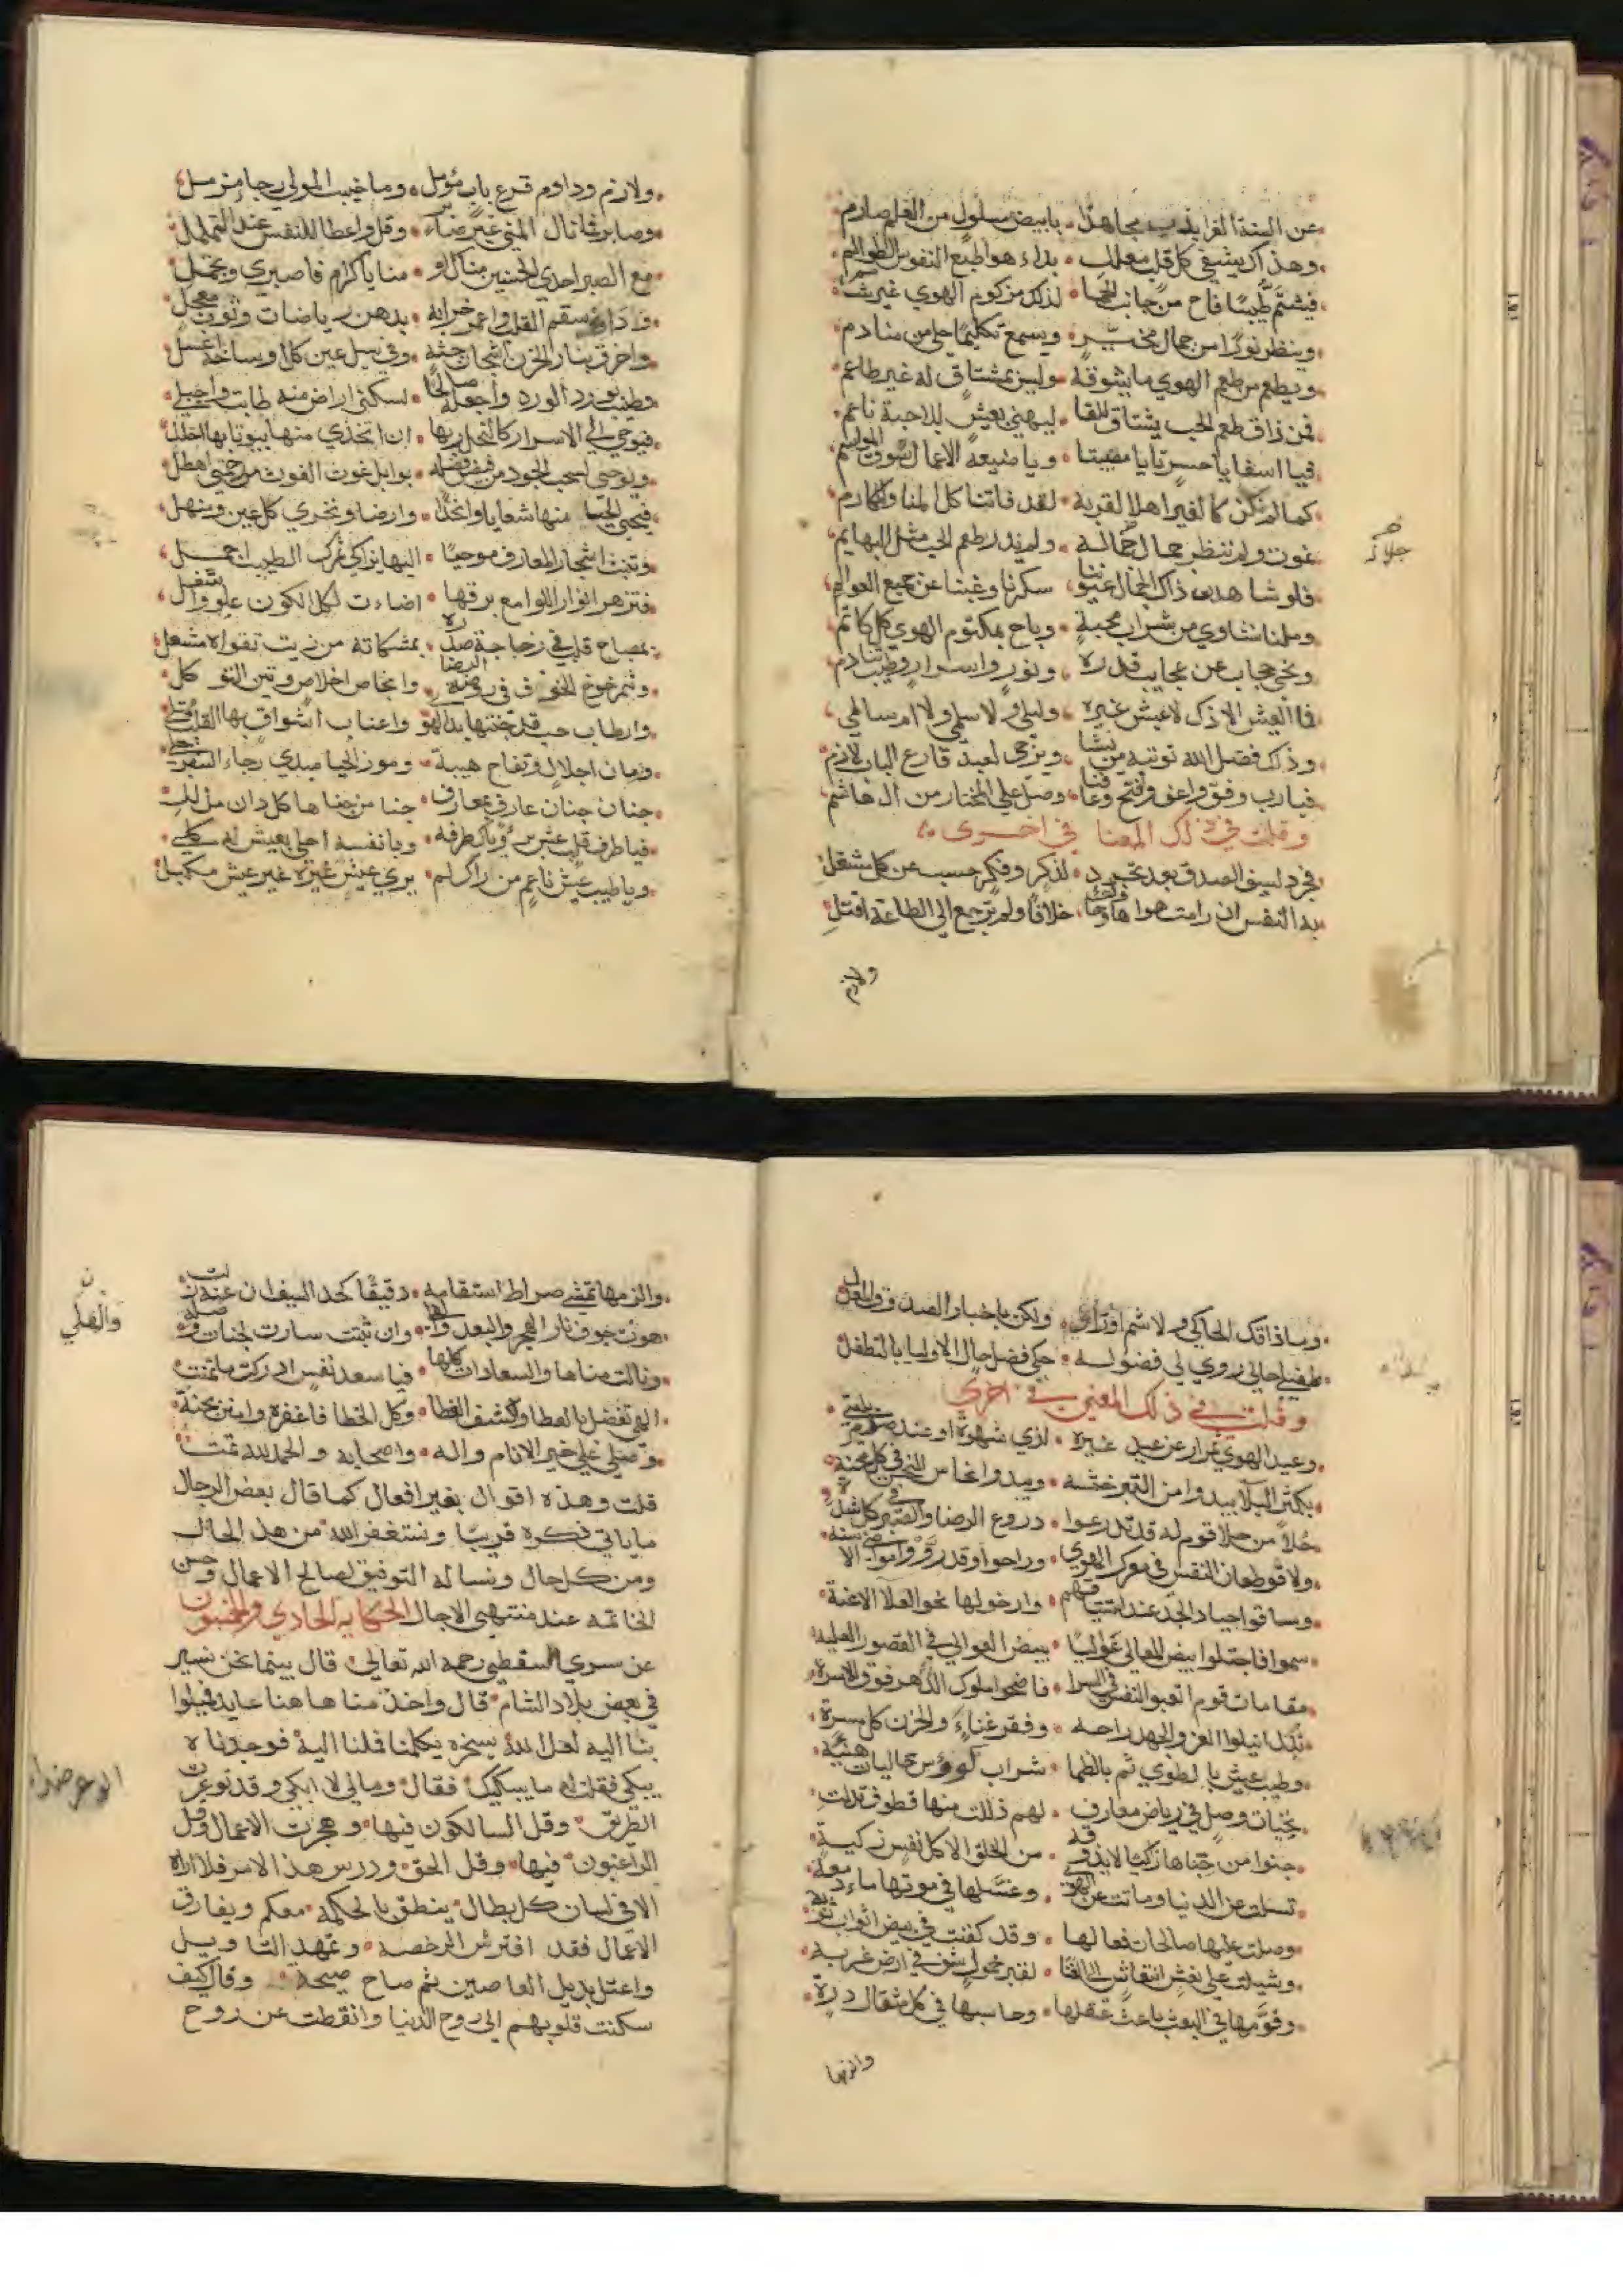 عن السنة الغرا يذب مجاهدًا • بابيض مسلول من العلم صارم
وهذاك يشفي كل قلب معلل • بداء هوا طبع النفوس الظوالم
فيشتم طيبًا فاح من جانب الحما • لذلك مزكوم الهوي غير شام
وينظر نورًا من جمال محبب • ويسمع تكليمًا حلى من منادم
ويطعم من طعم الهوي ما يشوقه • وليس بمشتاق له غير طاعم
فمن ذاق طعم الحب يشتاق للقا • ليهني بعيش للاحبة ناعم
فيا اسفا يا حسرتا يا مصيبتا • ويا ضيعة الاعمال سوق المواسم
كما لم نكن كالغير اهلا لقربه • لقد فاتنا كل المنا والمكارم
نموت ولم ننظر جمال جماله • ولم ندر طعم الحب مثل البهايم
جلاله
فلو شاهدت ذاك الجمال عيوننا • سكرنا وغبنا عن جميع العوالم
وملنا نشاوي من شراب محبة • وباح بمكتوم الهوي كل كاتم
ونحي حجاب عن عجايب قدره • ونور واسرار وطيب تنادم
فما العيش الا ذاك لا عيش غيره • وليلي ولا سلمي ولا ام سالمي
وذلك فضل الله نوتيه من يشا • ويرجى لعبد قارع الباب لازم
فيا رب وفق واعف وافتح وعافنا • وصل على المختار من ال هاشم
وقلت في ذلك المعنا في اخرى
فجرد لسيف الصدق بعد تجرد • لذكر وفكر حسب عن كل مشغل
به النفس ان رامت هواها وقا • خلافًا ولم ترجع الي الطاعة اقتل
ولازم
ولازم وداوم قرع باب مؤمل • وما خيب المولي رجا مزمل
وصابر فما نال المني غير صابر • وقل واعظا للنفس عند التململ
مع الصبر احدي الحسنيين منال او • منايا كرام فاصبري وتجمل
وداو سقم القلب واعمر خرابه • بدهن رياضات وثوب معجل
واحرق بنار الحزن اشجان جثة • وفي سيل عين كل اوساخه اغسل
وطيب بورد الورد واجعله صالحا • لسكني اراض منه طابت واجبلي
فيوحي الي الاسرار كالنحل ربها • ان اتخذي منها بيوتا بها احلل
ويوحي لسحب الجود من فيض فضله • بوابل غوث الغوث من رحمتي اهطل
فيحي الحيا منها شعابا وانجدا • وارضا وتجري كل عين ومنهل
وتنبت اشجار المعارف موحيا • اليها بزاكي تمرك الطيب احمل
فتزهر انوار اللوامع برقها • اضاءت لكل الكون علو واسفل
بمصباح قلب في زجاجة صدره • بمشكاته من زيت تقواه مشعل
وثمر خوخ الخوف في روضة الرضا • وانجاص اخلاص وتين التوكل
وارطاب حب قد جنتها يد الهوى • واعناب اشواق بها القلب ممتلي
ورمان اجلال وتفاح هيبة • وموز الحيا مبدي رجاء السفرجل
جنان جنان عارف بمعارف • جنا من جناها كل دان مذلل
فيا طرف قلب عش برؤياك طرفه • ويا نفسه احلى بعيش له كلي
ويا طيب عيش ناعم من راك لم • يري عيش غيره غير عيش مكمل
وما ذا قد الحاكي ولا شم او راي • ولكن باخبار الصدق والعدل
طفيلي حالي روي لي فضوله • حكي فضل حال الاوليا بالتطفل
وقلت في ذلك المعني في اخري
وعبد الهوي يمتاز عن عبد غيره • لذي شهوة او عند صدم بلية
بكثر البلا يبدوا من التبر خبثه • ويبدوا نحاس النحس في كل محنة
خلا من حلا قوم له قد تدرعوا • دروع الرضا والصبر في كل شدة
ولاقوا طعان النفس في معرك الهوي • وراحوا وقد رووا مواضي الاسنة
وساقوا جياد الجد عند استباقهم • وارخوا لها نحو العلا الاعنة
سموا فاجتلوا بيض المعالي غواليا • ببيض العوالي في القصور العليه
مقامات قوم اتعبوا النفس في السرا • فاضحوا ملوك الدهر فوق الاسرة
بذل انيلوا العز والجهد راحه • وفقر غناء والحزن كل مسرة
وطيب عيش بالطوي ثم بالظما • شراب كووس حاليات هنية
بجنات وصل في رياض معارف • لهم ذللت منها قطوف تدلت
جنوا من جناها زاكيا لا يذوقه • من الخلق الا كل نفس زكية
تسلت عن الدنيا وماتت عن الهوي • وغسلها في موتها ماء دمعة
وصلت عليها صالحات فعالها • وقد كفنت في بيض اثواب توبة
وشيلت على نعش انتعاش الي الفنا • لقبر خمول شق في ارض غربة
وقومها في البعث باعث عقلها • وحاسبها في كل مثقال درة
والزمها
والزمها تمشي صراط استقامه • دقيقًا كحد السيف ان عنه زلت
هوت جوف نار الهجر والبعد والقلي • وان ثبتت سارت لجنات وصلة
والقلي
ونالت مناها والسعادات كلها • فيا سعد نفس ادركت ما تمنت
الهي تفضل بالعطا وكشف الغطا • وكل الخطا فاغفره وامنن بجنة
وصلي على خير الانام واله • واصحابه والحمد لله تمت
قلت وهذه اقوال بغير افعال كما قال بعض الرجال
ما ياتي ذكره قريبا ونستغفر الله من هذا الحال
ومن كل حال ونساله التوفيق لصالح الاعمال وحسن
الخاتمه عند منتهى الاجال الحكايه الحادي والخمسون
عن سري السقطي رحمه الله تعالى قال بينما نحن نسير
في بعض بلاد الشام قال واحد منا هاهنا عابد فميلوا
بنا اليه لعل الله يسخره يكلمنا فملنا اليه فوجدناه
يبكي فقلنا له ما يبكيك فقال ومالي لا ابكي وقد توعرت
الطريق وقل السالكون فيها وهجرت الاعمال وقل
الراغبون فيها وقل الحق ودرس هذا الامر فلا اراه
الا في لسان كل بطال ينطق بالحكمة معكم ويفارق
الاعمال فقد افترش الرخصه وتمهد التاويل
واعتل بذيل العاصين ثم صاح صيحة وقال كيف
سكنت قلوبهم الى روح الدنيا وانقطعت عن روح